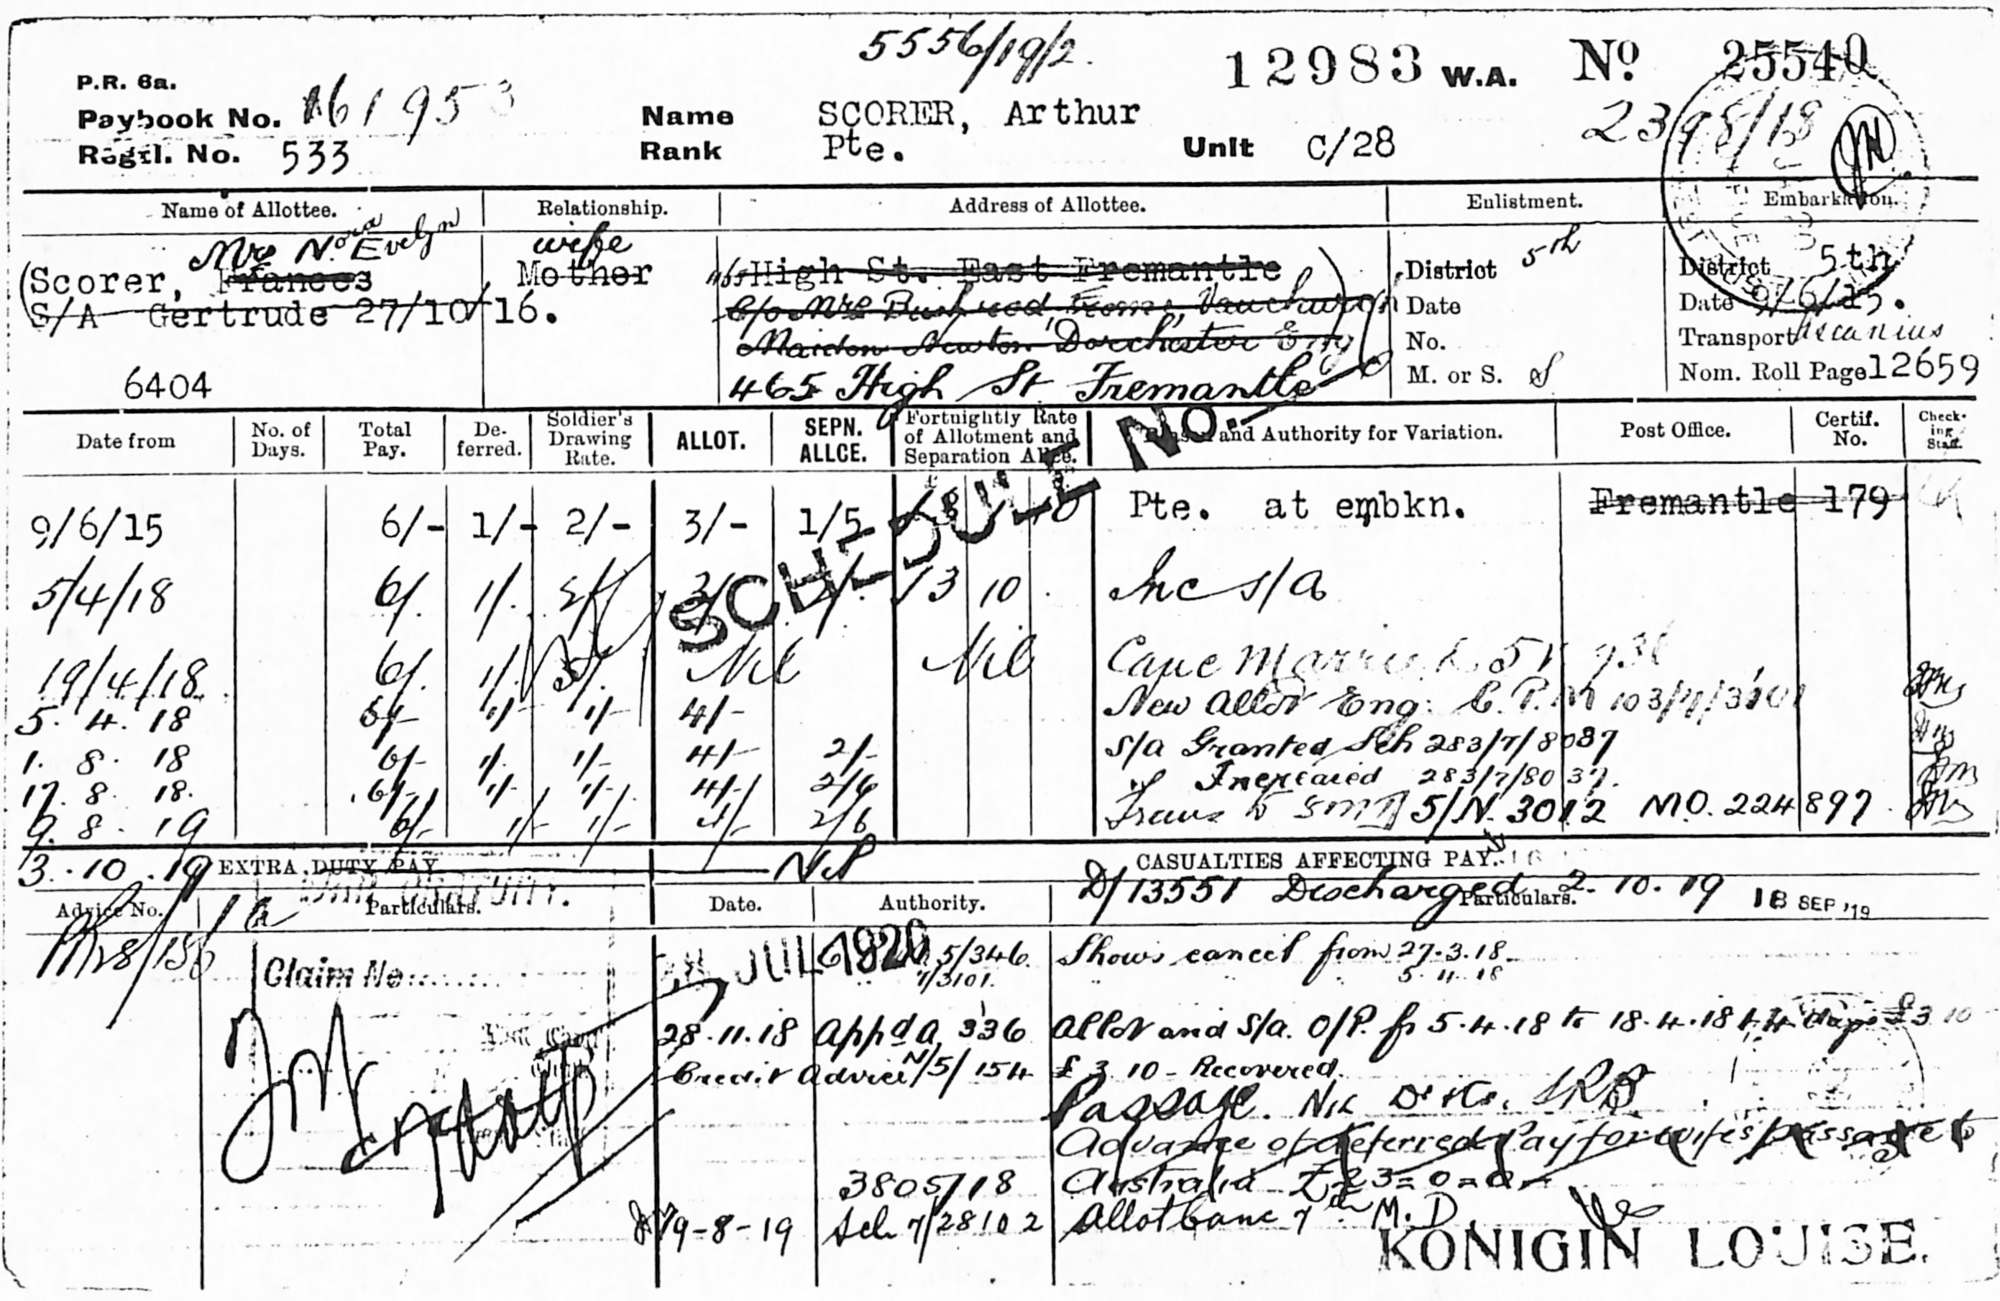 5556/19/2
12983 W.A. No. 25540
P.R. 6a.
Paybook No. 161953
Name SCORER, Arthur
2398/18
Regtl. No. 533
Rank Pte. Unit C/28
Name of Allottee. Relationship. Address of Allottee. Enlistment. Embarkation.
Mrs Nora Evelyn wife
Scorer, Frances Mother High St. East Fremantle District 5th District 5th
S/A Gertrude 27/10/16. c/o Mrs Date Date 9/6/15.
Maiden Newton Dorchester Eng No. Transport Ascanius
6404 465 High St Fremantle M. or S. S Nom. Roll Page 12659
Date from No. of Days. Total Pay. Deferred. Soldier's Drawing Rate. ALLOT. SEPN. ALLCE. Fortnightly Rate of Allotment and Separation Allce. and Authority for Variation. Post Office. Certif. No. Checking Staff.
SCHEDULE NO.
9/6/15 6/- 1/- 2/- 3/- 1/5 Pte. at embkn. Fremantle 179
5/4/18 6/. 1/. 2/. 3/. 13 10 Inc s/a
19/4/18 6/. 1/. 5/. Nil Nil Canc
5. 4. 18 6/- 1/- 1/- 4/- New Allot Eng. C.P.M 103/7/3101
1. 8. 18 6/- 1/. 1/- 4/- 2/- s/a Granted Sch 283/7/8037
17. 8. 18. 6/- 1/- 1/- 4/- 2/6 Increased 283/7/8037.
9. 8. 19 6/- 1/- 1/- 4/- 2/6 Trans to 5/N. 3012 M.O. 224897
3. 10. 19 EXTRA DUTY PAY CASUALTIES AFFECTING PAY.
D/13551 Discharged 2. 10. 19 18 SEP '19
Advice No. Particulars. Date. Authority. Particulars.
JUL 1920 5/346 Shows cancel from 27.3.18
7/3101. 5.4.18
Claim No.
28.11.18 Appd A 336 Allot and s/a. O/P. fr 5.4.18 to 18.4.18 14 days £3 10
Credit Advice N/5/154 £3 10 - Recovered.
Passage.
Advance of deferred Pay for wifes passage to
3805/18 Australia £23=0=0
9-8-19 Sch 7/28102 Allot Canc 7th M.D
KONIGIN LOUISE.